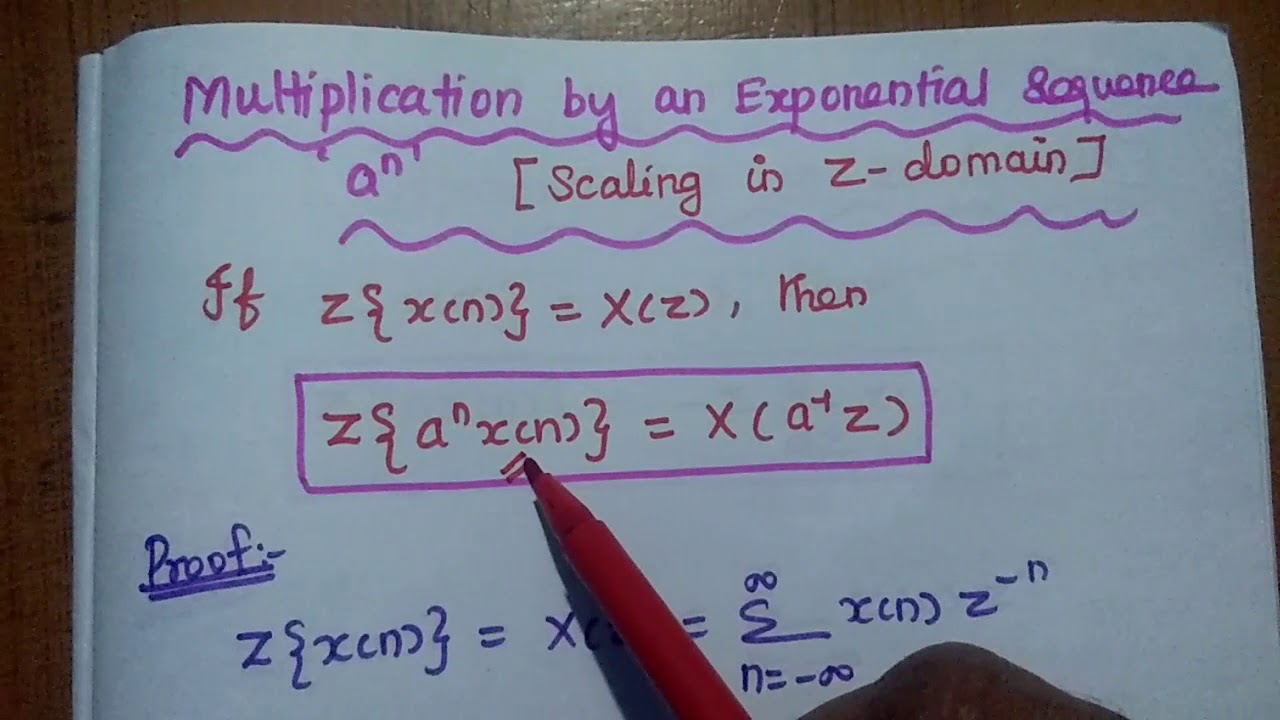 Multiplication by an Exponential Sequence
'aⁿ' [Scaling in z-domain]
If z{x(n)} = X(z), then
z{aⁿx(n)} = X(a⁻¹z)
Proof:-
z{x(n)} = X( = ∞Σn=-∞ x(n) z⁻ⁿ